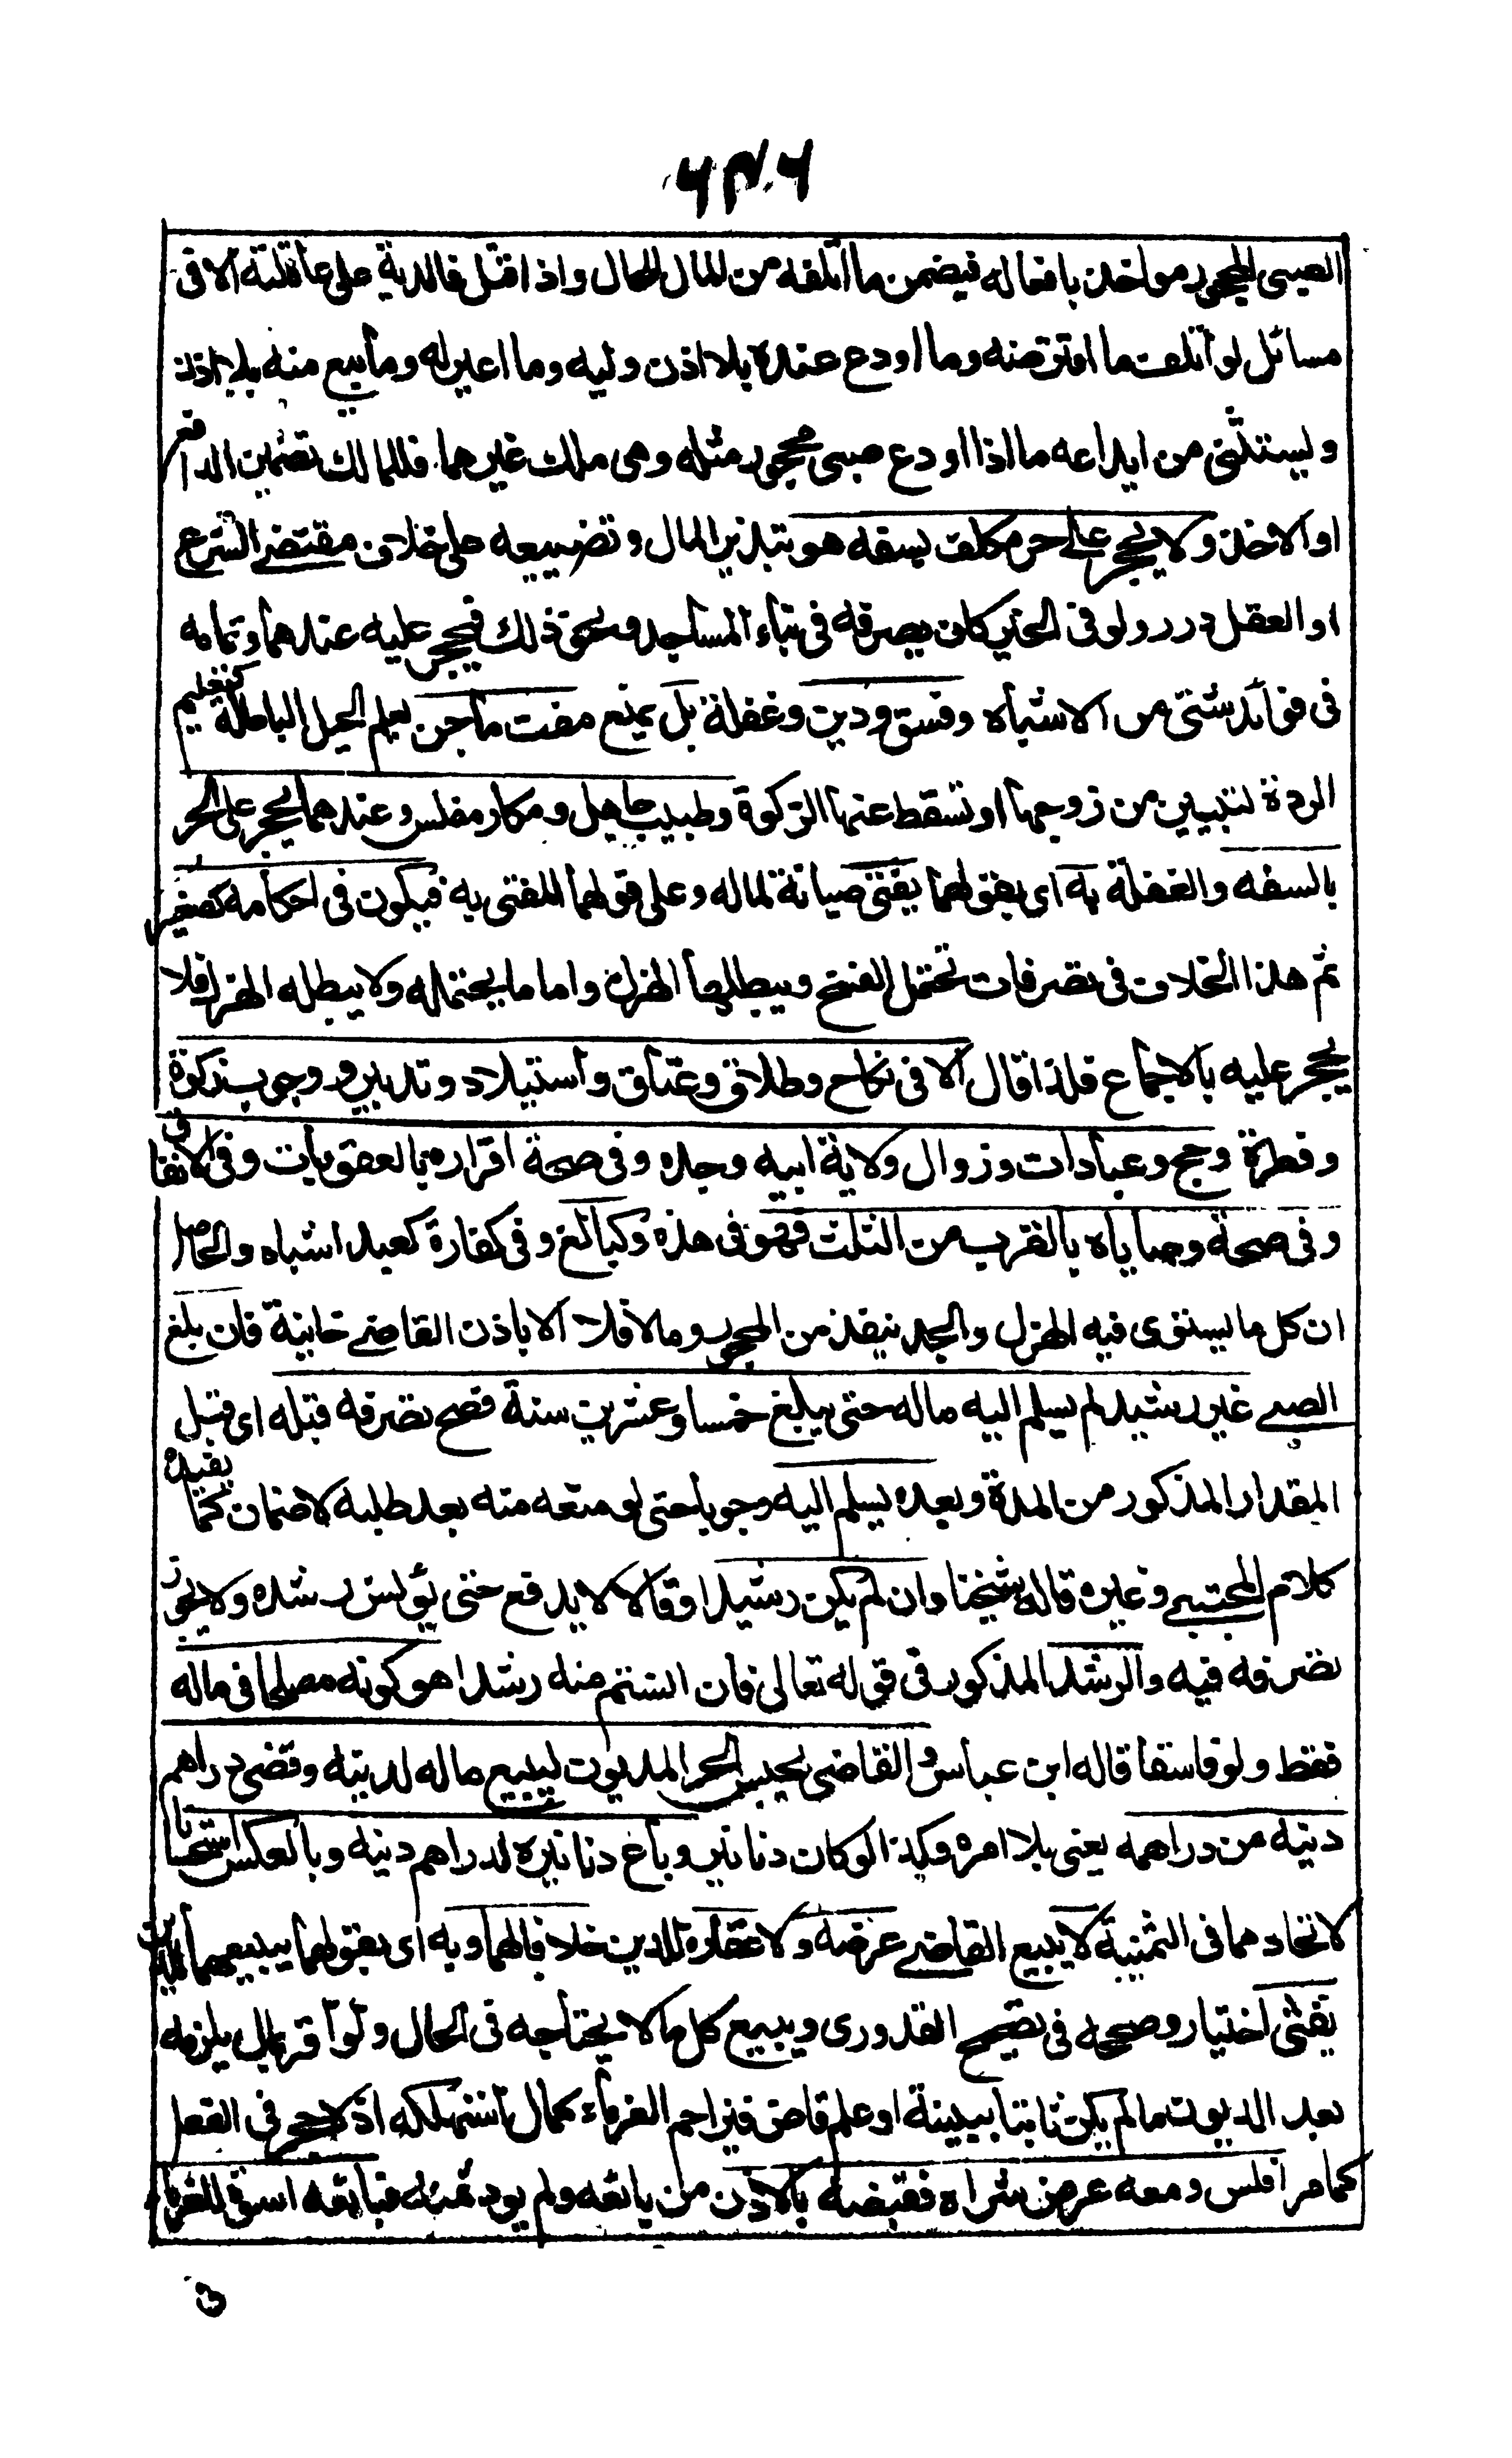 ٦٣٠٦
الصبى المحجور مواخذ بافعاله فيضمن ما اتلفه من المال للحال واذا قتل فالدية على عاقلته الا فى
مسائل لو اتلف ما اقترضه وما اودع عنده بلا اذن وليه وما اعير له وما بيع منه بلا اذن
ويستثنى من ايداعه ما اذا اودع صبى محجور مثله وهى ملك غيرهما فللمالك تضمين الدافع
او الاخذ ولا يحجر على حر مكلف بسفه هو تبذير المال وتضييعه على خلاف مقتضى الشرع
او العقل درر ولو فى الخير كان يصرفه فى بناء المساجد ونحو ذلك فيحجر عليه عندهما وتمامه
فى فوائد شتى من الاشباه وفسق ودين وغفلة بل يمنع مفت ماجن يعلم الحيل الباطلة كتعليم
الردة لتبين من زوجها او تسقط عنها الزكوة وطبيب جاهل ومكار مفلس وعندهما يحجر على الحر
بالسفه والغفلة به اى بقولهما يفتى صيانة لماله وعلى قولهما المفتى به فيكون فى احكامه كصغير
ثم هذا الخلاف فى تصرفات تحتمل الفسخ ويبطلها الهزل واما ما لا يحتمله ولا يبطله الهزل فلا
يحجر عليه بالاجماع فلذا قال الا فى نكاح وطلاق وعتاق واستيلاد وتدبير ووجوب زكوة
وفطرة وحج وعبادات وزوال ولاية ابيه وجده وفى صحة اقراره بالعقوبات وفى الانفاق
وفى صحة وصاياه بالقرب من الثلث فهو فى هذه كبالغ وفى كفارة كعبد اشباه والحاصل
ان كل ما يستوى فيه الهزل والجد ينفذ من المحجور وما لا فلا الا باذن القاضى خانية فان بلغ
الصبى غير رشيد لم يسلم اليه ماله حتى يبلغ خمسا وعشرين سنة فصح تصرفه قبله اى قبل
المقدار المذكور من المدة وبعده يسلم اليه وجوبا حتى لو منعه منه بعد طلبه لا ضمان كما يفيده
كلام المجتبى وغيره قاله شيخنا وان لم يكن رشيدا وقالا لا يدفع حتى يؤنس رشده ولا يجوز
تصرفه فيه والرشد المذكور فى قوله تعالى فان انستم منه رشدا هو كونه مصلحا فى ماله
فقط ولو فاسقا قاله ابن عباس والقاضى يحبس الحر المديون ليبيع ماله لدينه وقضى دراهم
دينه من دراهمه يعنى بلا امره وكذا لو كان دنانير وباع دنانيره لدراهم دينه وبالعكس استحسانا
لاتحادهما فى الثمنية لا يبيع القاضى عرضه ولا عقاره للدين خلافا لهما وبه اى بقولهما يبيعهما للدين
يفتى اختيار وصححه فى تصحيح القدورى ويبيع كل ما لا يحتاجه فى الحال ولو اقر بمال يلزمه
بعد الديون ما لم يكن ثابتا ببينة او علم قاض فيزاحم الغرماء كمال استهلكه اذ لا حجر فى الفعل
كما مر افلس ومعه عرض شراه فقبضه بالاذن من بائعه ولم يود ثمنه فبائعه اسوة للغرماء